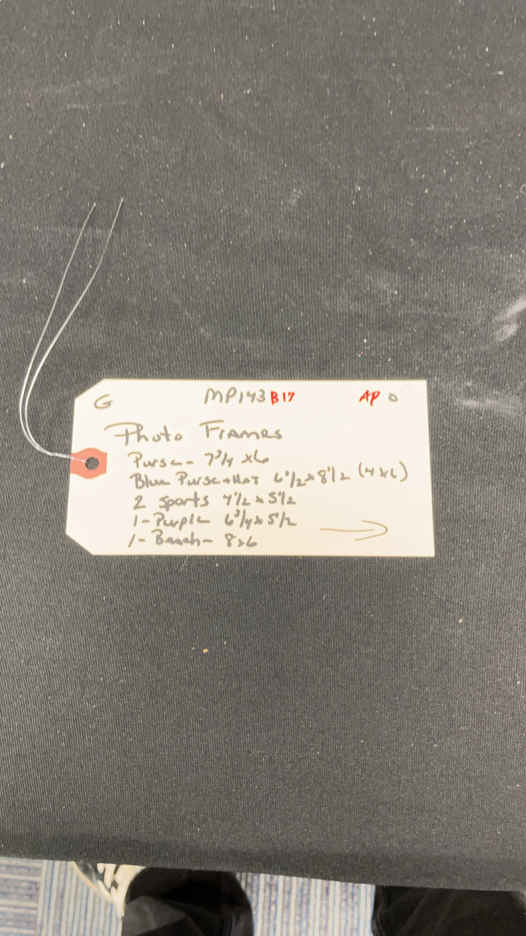 G MP143 B17 AP 0
Photo Frames
Purse - 7 3/4 x 6
Blue Purse + Hat 6 1/2 x 8 1/2 (4 x 6)
2 sports 7 1/2 x 5 1/2
1 - Purple 6 3/4 x 5 1/2
1 - Beach - 8 x 6